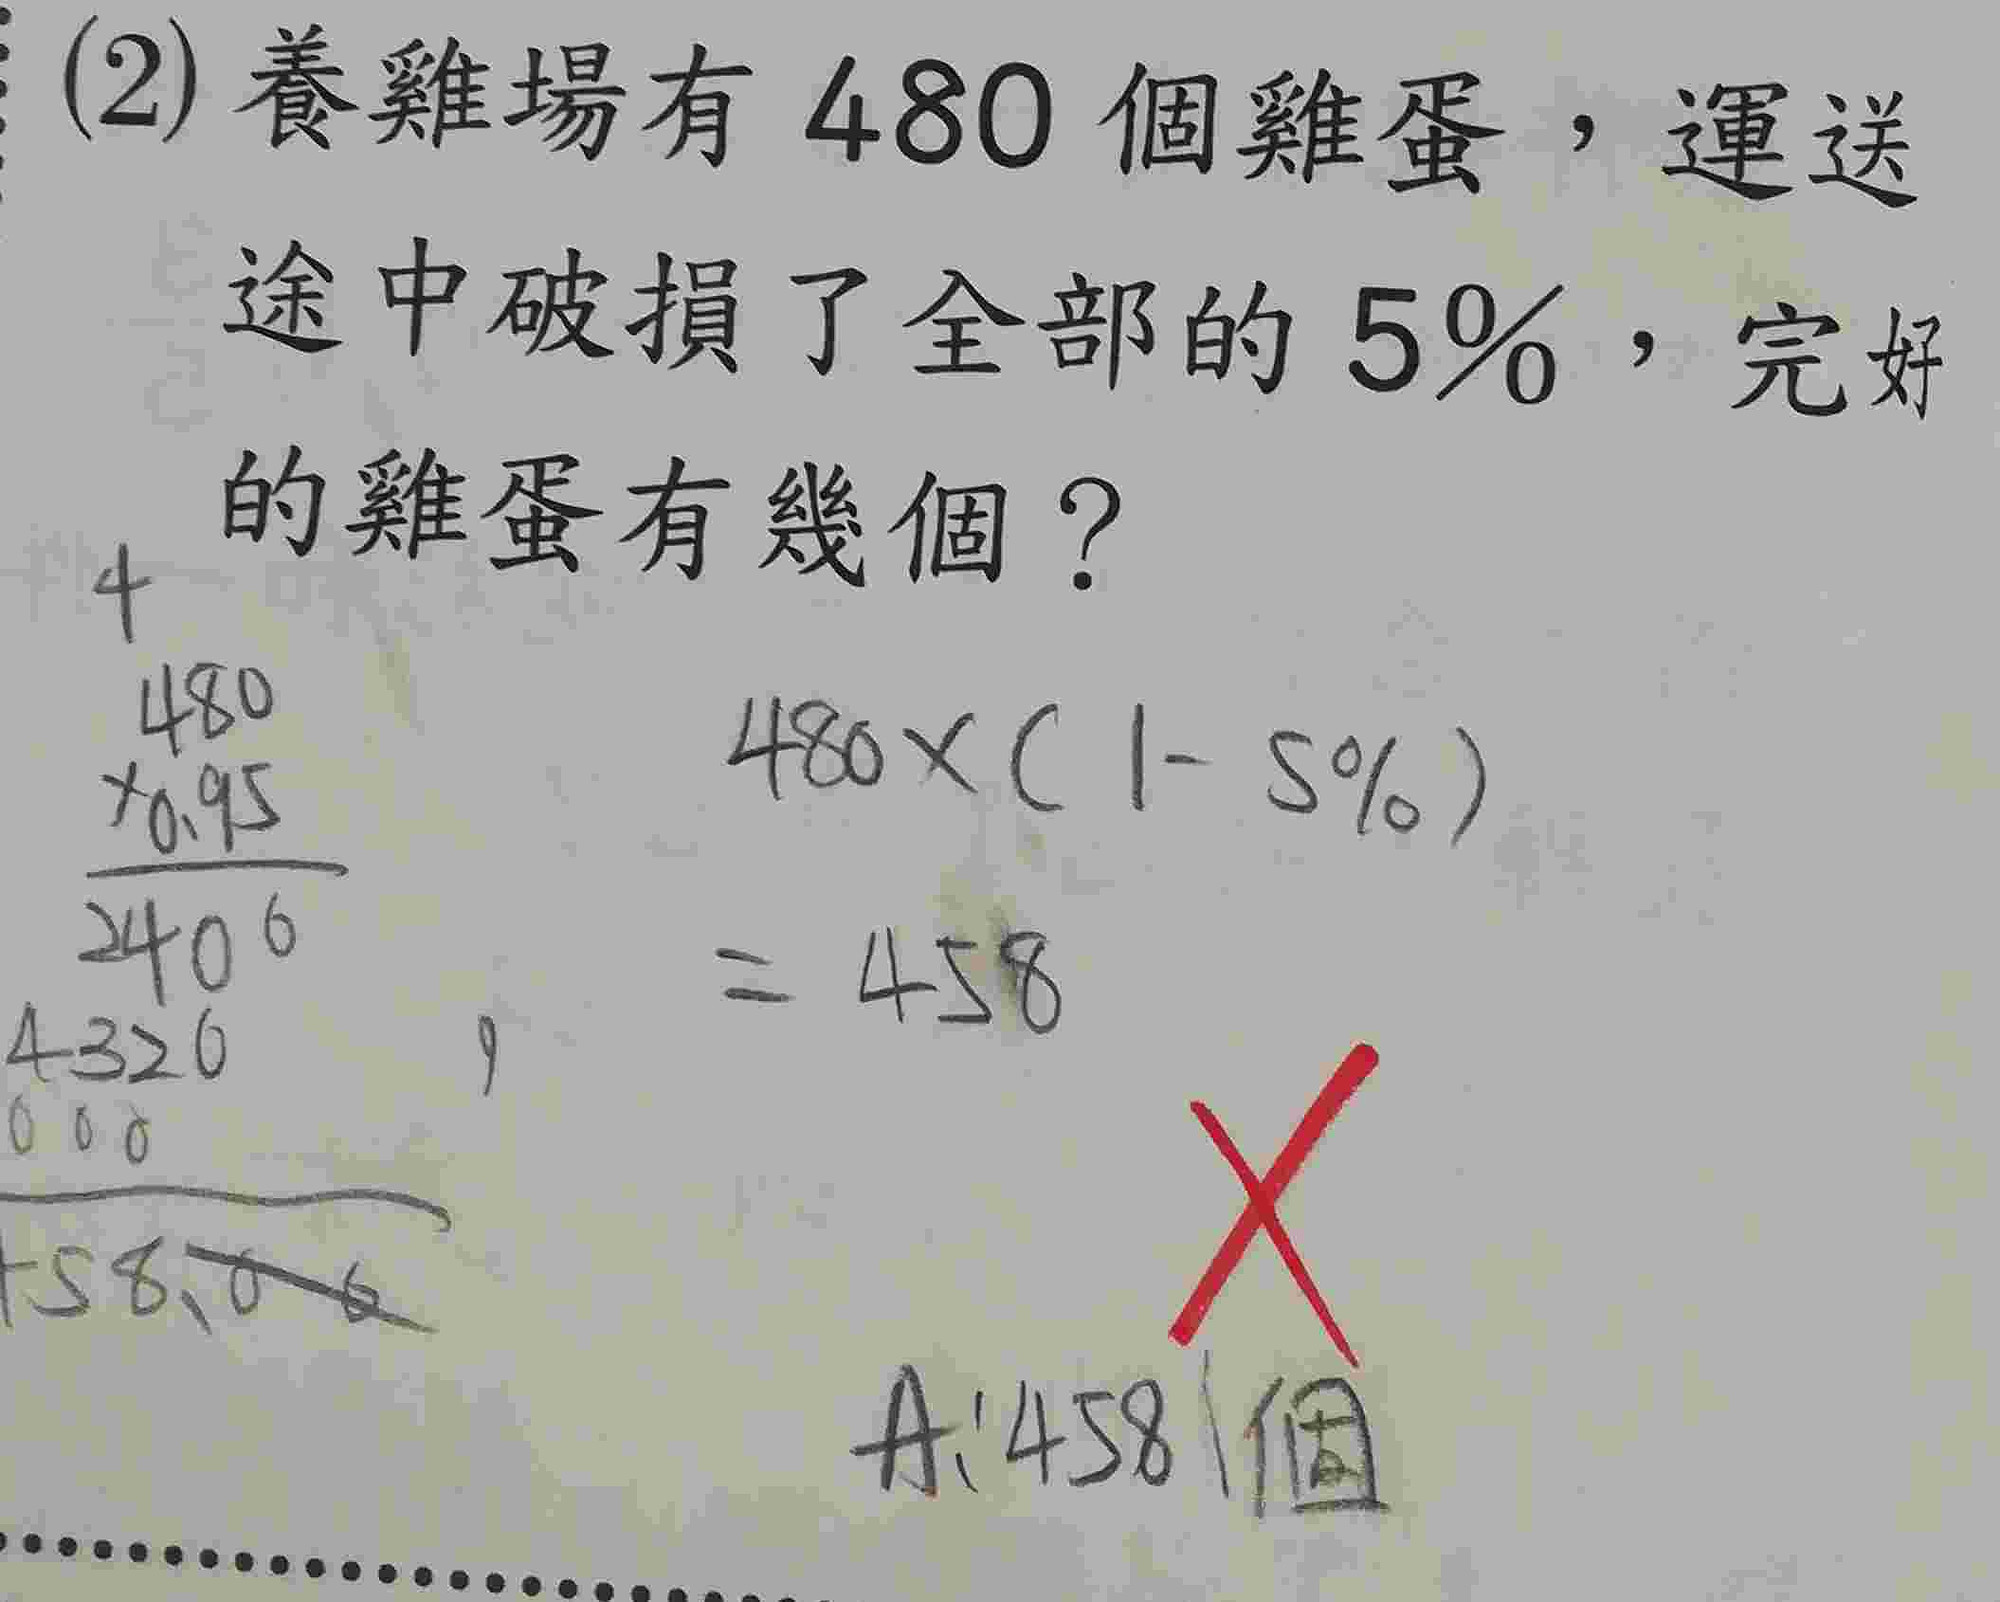 (2) 養雞場有 480 個雞蛋，運送
途中破損了全部的 5%，完好
的雞蛋有幾個？
4
480
×0.95
2400
4320
000
458.00
480×(1-5%)
=458
A:458個